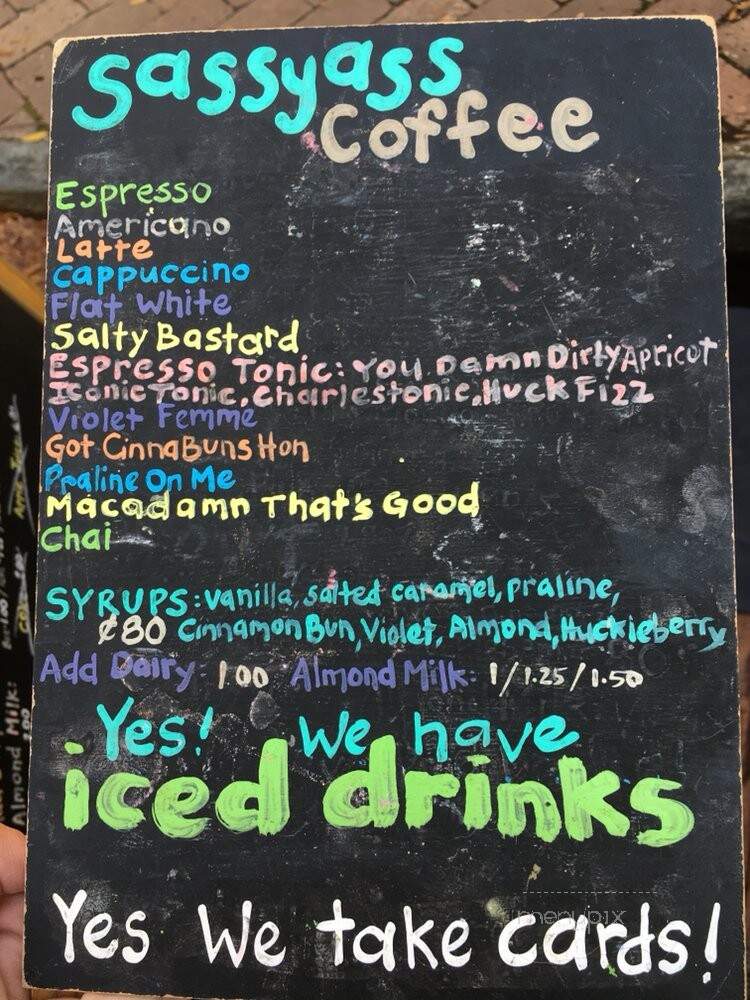 Sassyass
Coffee
Espresso
Americano
Latte
Cappuccino
Flat White
Salty Bastard
Espresso Tonic: You Damn Dirty Apricot
Iconic Tonic, Charlestonic, Huck Fizz
Violet Femme
Got CinnaBuns Hon
Praline On Me
Macadamn That's Good
Chai
SYRUPS: vanilla, salted caramel, praline,
¢80 Cinnamon Bun, Violet, Almond, Huckleberry
Add Dairy: 1.00 Almond Milk: 1/1.25/1.50
Yes! We have
iced drinks
Yes We take cards!
menupix
Almond Milk: